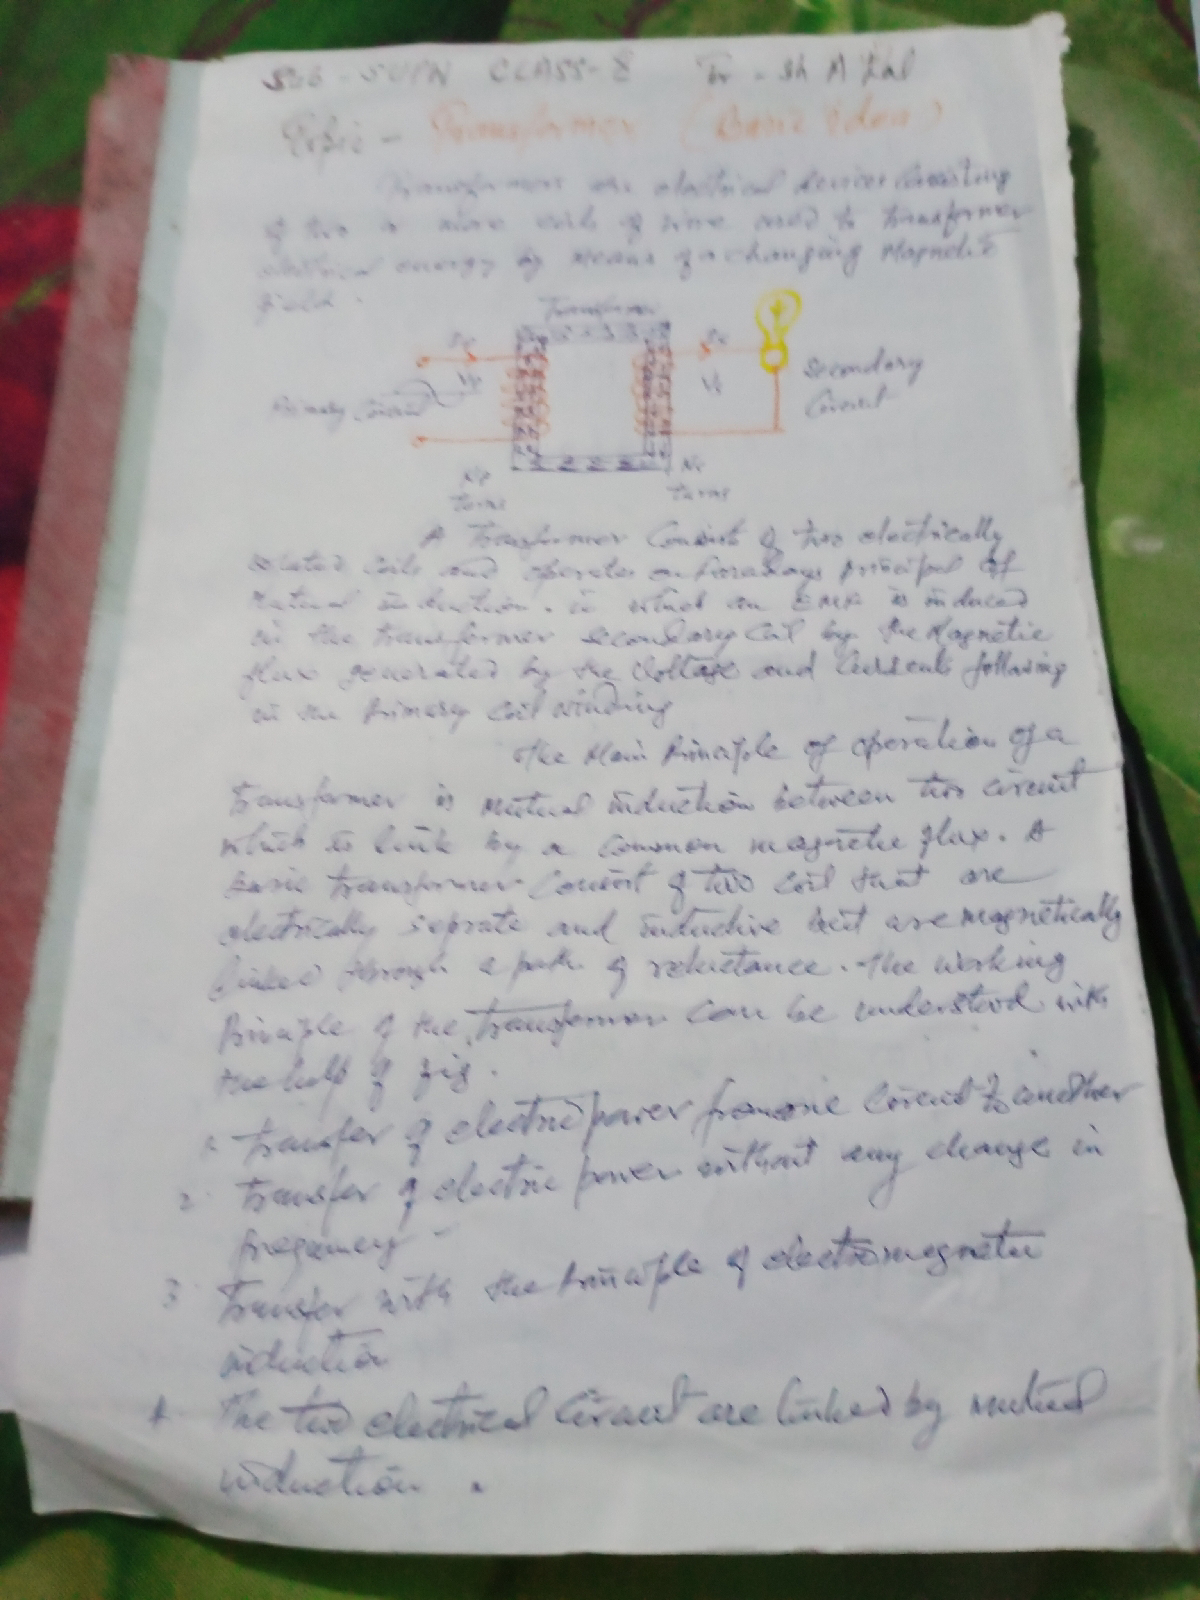 Sub - SUPW CLASS - 8 Tr - Sh A Lal
Topic - Transformer (Basic Idea)
Transformers are electrical devices Consisting
of two or more coils of wire used to transformer
electrical energy by means of a changing Magnetic
field.
Transformer
Vp
Vs
Secondary
Circuit
Primary Circuit
Np
turns
Ns
turns
A Transformer Consist of two electrically
isolated coils and operates on Faradays principal of
Mutual induction. in which an EMF is induced
in the transformer secondary coil by the Magnetic
flux generated by the Voltage and Currents following
in the Primary coil winding
The Main Principle of operation of a
transformer is mutual induction between two circuit
which is link by a common magnetic flux. A
basic transformer Consist of two coil that are
electrically seprate and inductive but are magnetically
linked through a path of reluctance. The working
Principle of the transformer can be understood with
the help of fig.
1. Transfer of electric power from one circuit to another
2. Transfer of electric power without any change in
frequency
3. Transfer with the Principle of electromagnetic
induction
4. The two electrical Circuit are linked by mutual
induction.